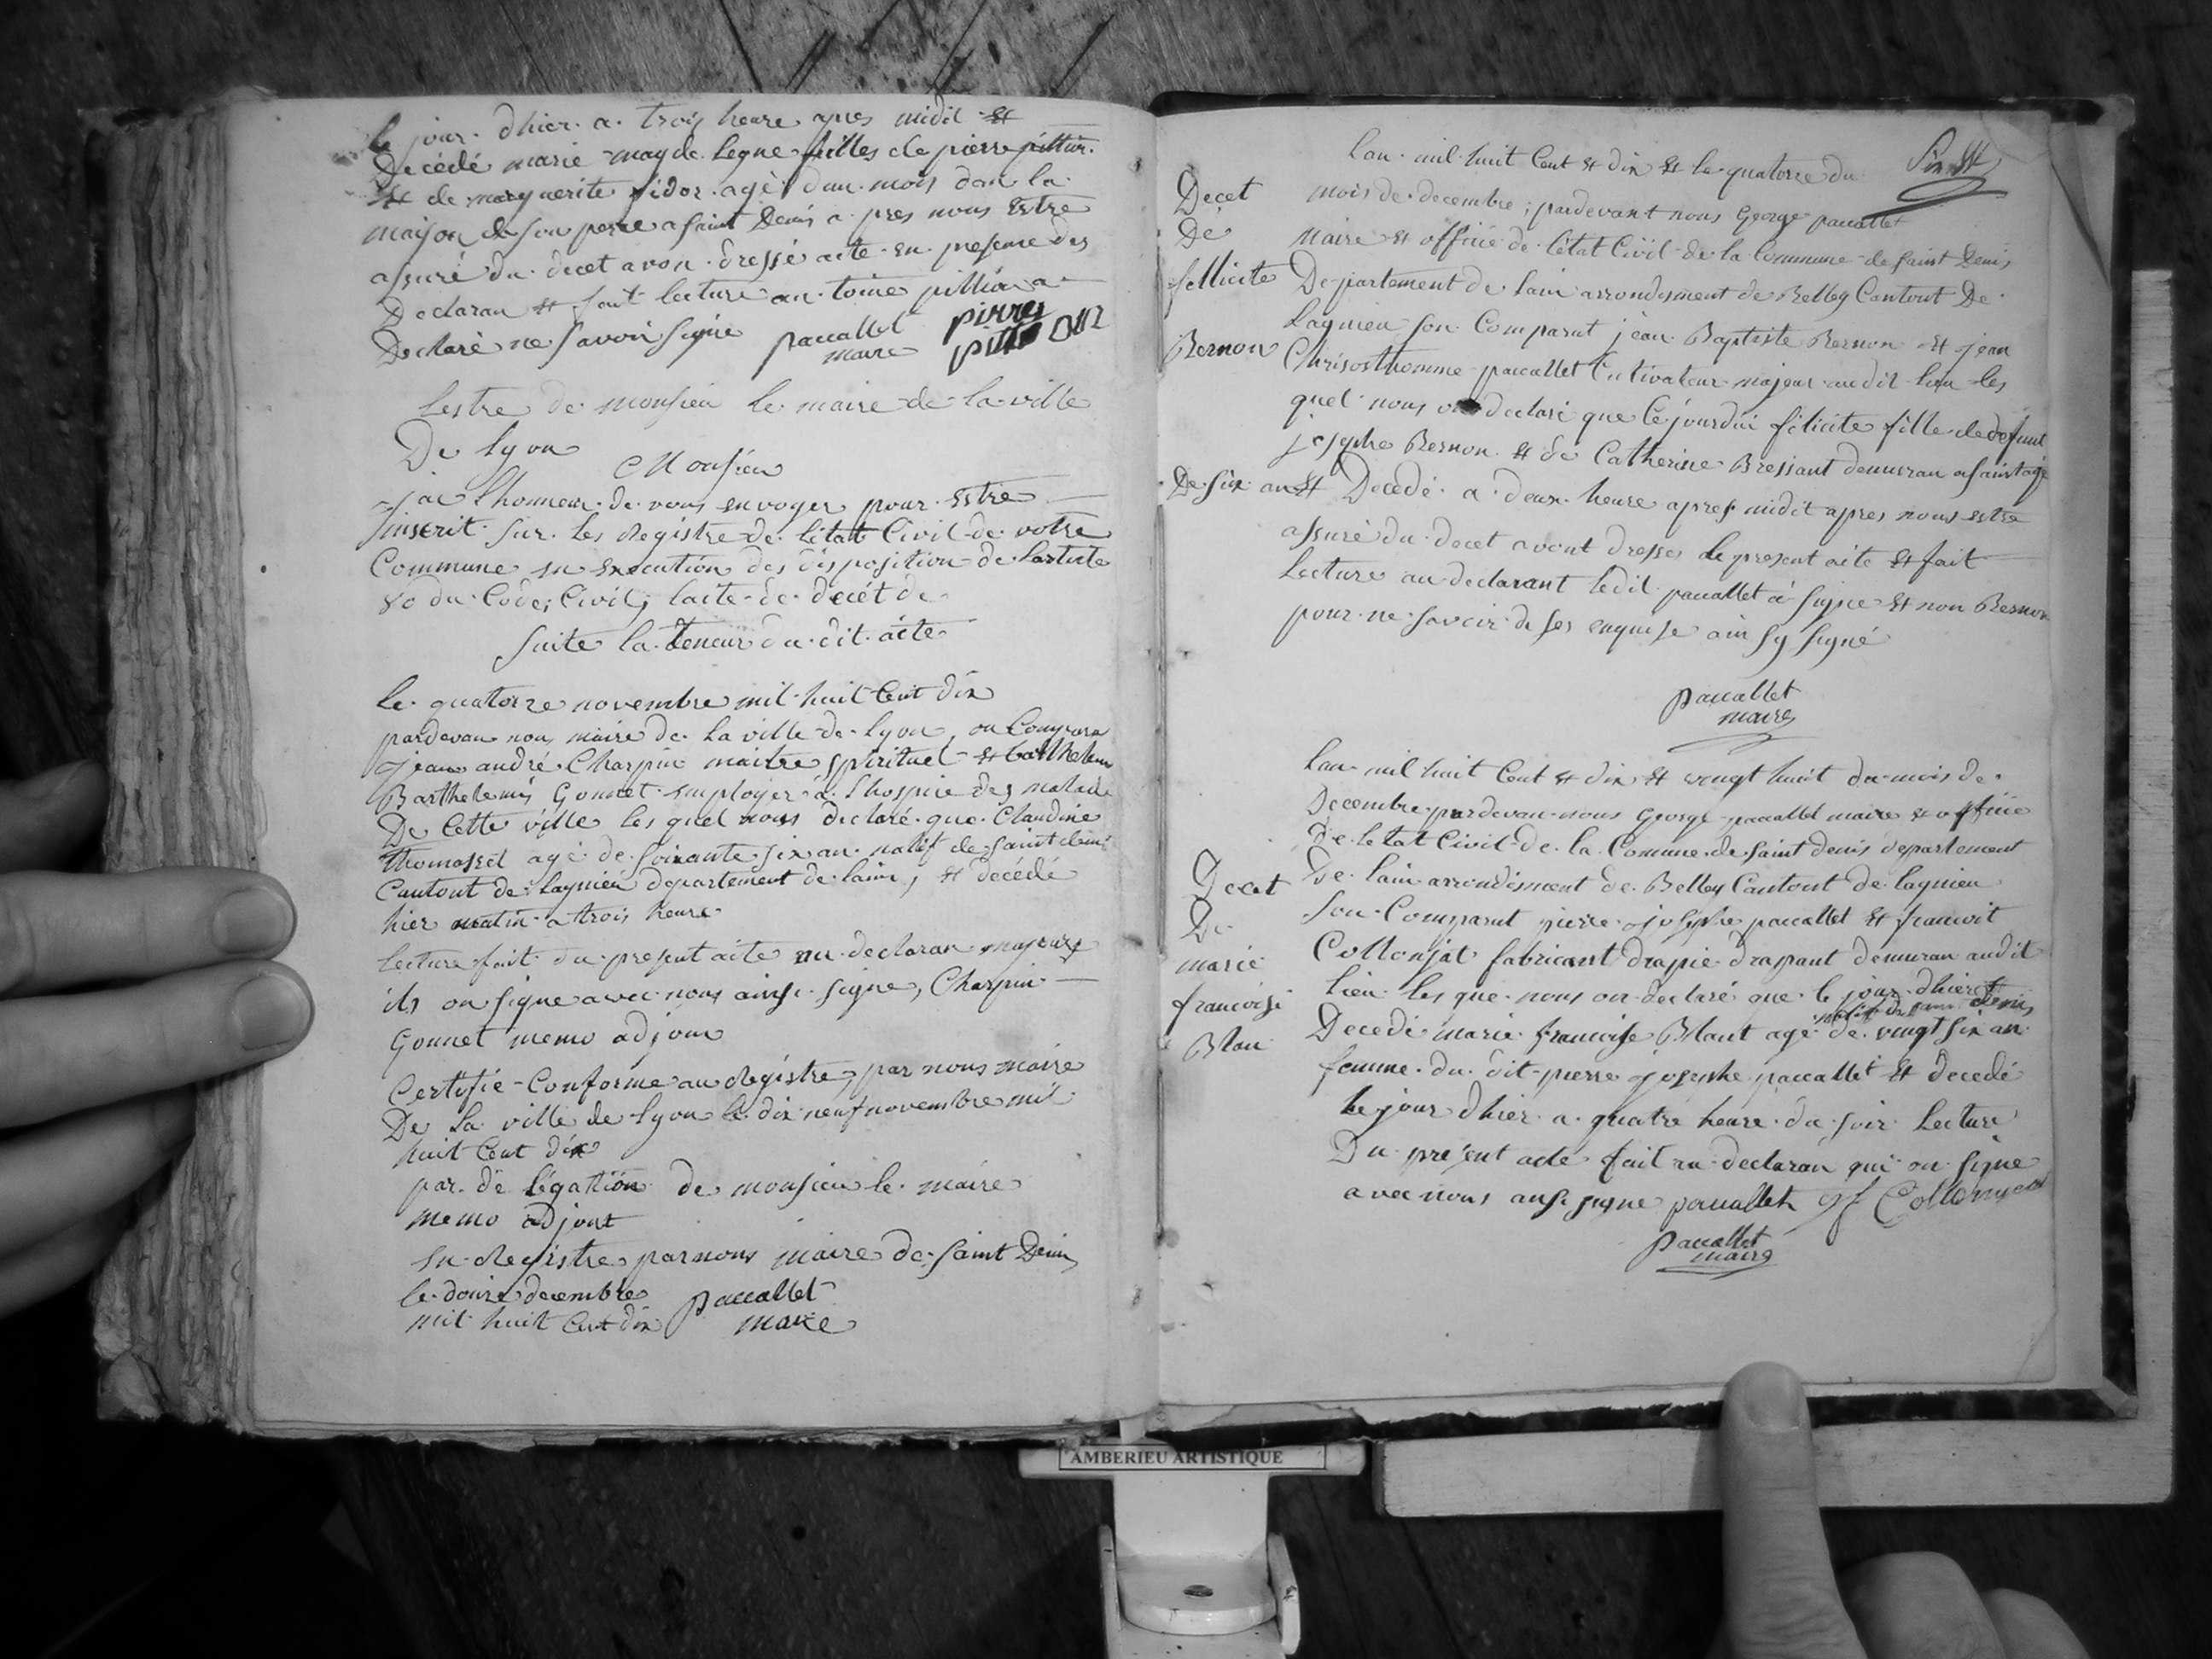 le jour dhier a trois heure apres midit et
Decédé marie magdelegne filles de pierre pittion
et de marguerite fidor agè dun mois dan la
maison de son perre a saint Denis a pres nous Estre
assuré du decet avon dressé acte en presence des
Declaran et fait lecture antoine pittion a
Declaré ne savoir signe paccallet pierres
maire pittion
Lestre de monsieu le maire de la ville
De lyon
Monsieu
jai lhonneur de vous envoyer pour Estre
inscrit sur les Registre de létatt Civil de votre
Commune en Execution des disposition de lasticte
80 du Code Civil, lacte de decét de
suite la teneur du dit acte
le quatorze novembre mil huit Cent dix
pardevan nous maire de la ville de lyon, on Compara
jean andré Charpin maitre spirituel et batthelem
Barthelemis Gonnet employer a lhospice des malade
De Cette ville les quel nous declaré que Claudine
thomasset agé de soixante six an natif de saint denis
Cantont de Lagnieu departement de lain, et decédé
hier matin a trois heure
lecture fait du present acte au declaran majeurs
ils on signe avec nous ainsi signe, Charpin
Gonnet memo adjoin
Certifié Conforme au Registre par nous maire
De la ville de lyon le dix neuf novembre mil
huit Cent dix
par délégation de monsieu le maire
memo adjont
en Registre par nous maire de saint Denis
le douze decembre paccallet
mil huit Cent dix maire
Six
Lan mil huit Cent et dix et le quatorze du
mois de decembre; pardevant nous George paccallet
Maire et officié de létat Civil de la Commune de saint Denis
Departement de lain arrondisment de Belley Cantont De
Lagnieu son Comparut jean Baptiste Bernon et jean
Chrisosthomme paccallet Cultivateur majeur audit lieu les
quel nous declaré que Cejourdui félicite fille de defunt
josephe Bernon et de Catherine Bressant demuran a saint agé
De six an et Decédé a deux heure apres midit apres nous estre
assuré du decet avont dresser le present acte et fait
Lecture au declarant ledit paccallet à signe et non Bernon
pour ne savoir de ses enquise ainsy signé
paccallet
maire
Decet
De
fellicite
Bernon
Lan mil huit Cent et dix et vengt huit du mois de
Decembre pardevan nous George paccallet maire et officie
de létat Civil de la Comune de saint denis departement
De lain arrondisment de Belley Cantont de lagnieu
son Comparut pierre josephe paccallet et francoit
Collonjat fabricant drapie drapant demuran audit
lieu les que nous on declaré que le jour dhier et
natif de saint denis
Decedé marie francoise Blant agé de vengt six an
femme du dit pierre josephe paccallet et decedé
le jour dhier a quatre heure du soir Lecture
Du present acte fait au declaran qui on signe
avec nous ansi signe paccallet Collonjat
paccallet
maire
Decet
De
marie
francoise
Blan
AMBERIEU ARTISTIQUE